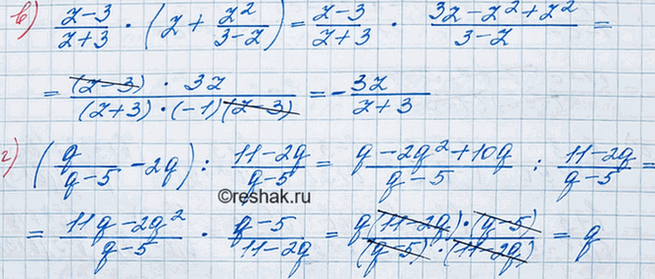 в) (z-3)/(z+3) · (z + z²/(3-z)) = (z-3)/(z+3) · (3z-z²+z²)/(3-z) =
= ((z-3) · 3z)/((z+3) · (-1)(z-3)) = - 3z/(z+3)
г) (q/(q-5) - 2q) : (11-2q)/(q-5) = (q-2q²+10q)/(q-5) : (11-2q)/(q-5) =
©reshak.ru
= (11q-2q²)/(q-5) · (q-5)/(11-2q) = (q(11-2q)·(q-5))/((q-5)·(11-2q)) = q